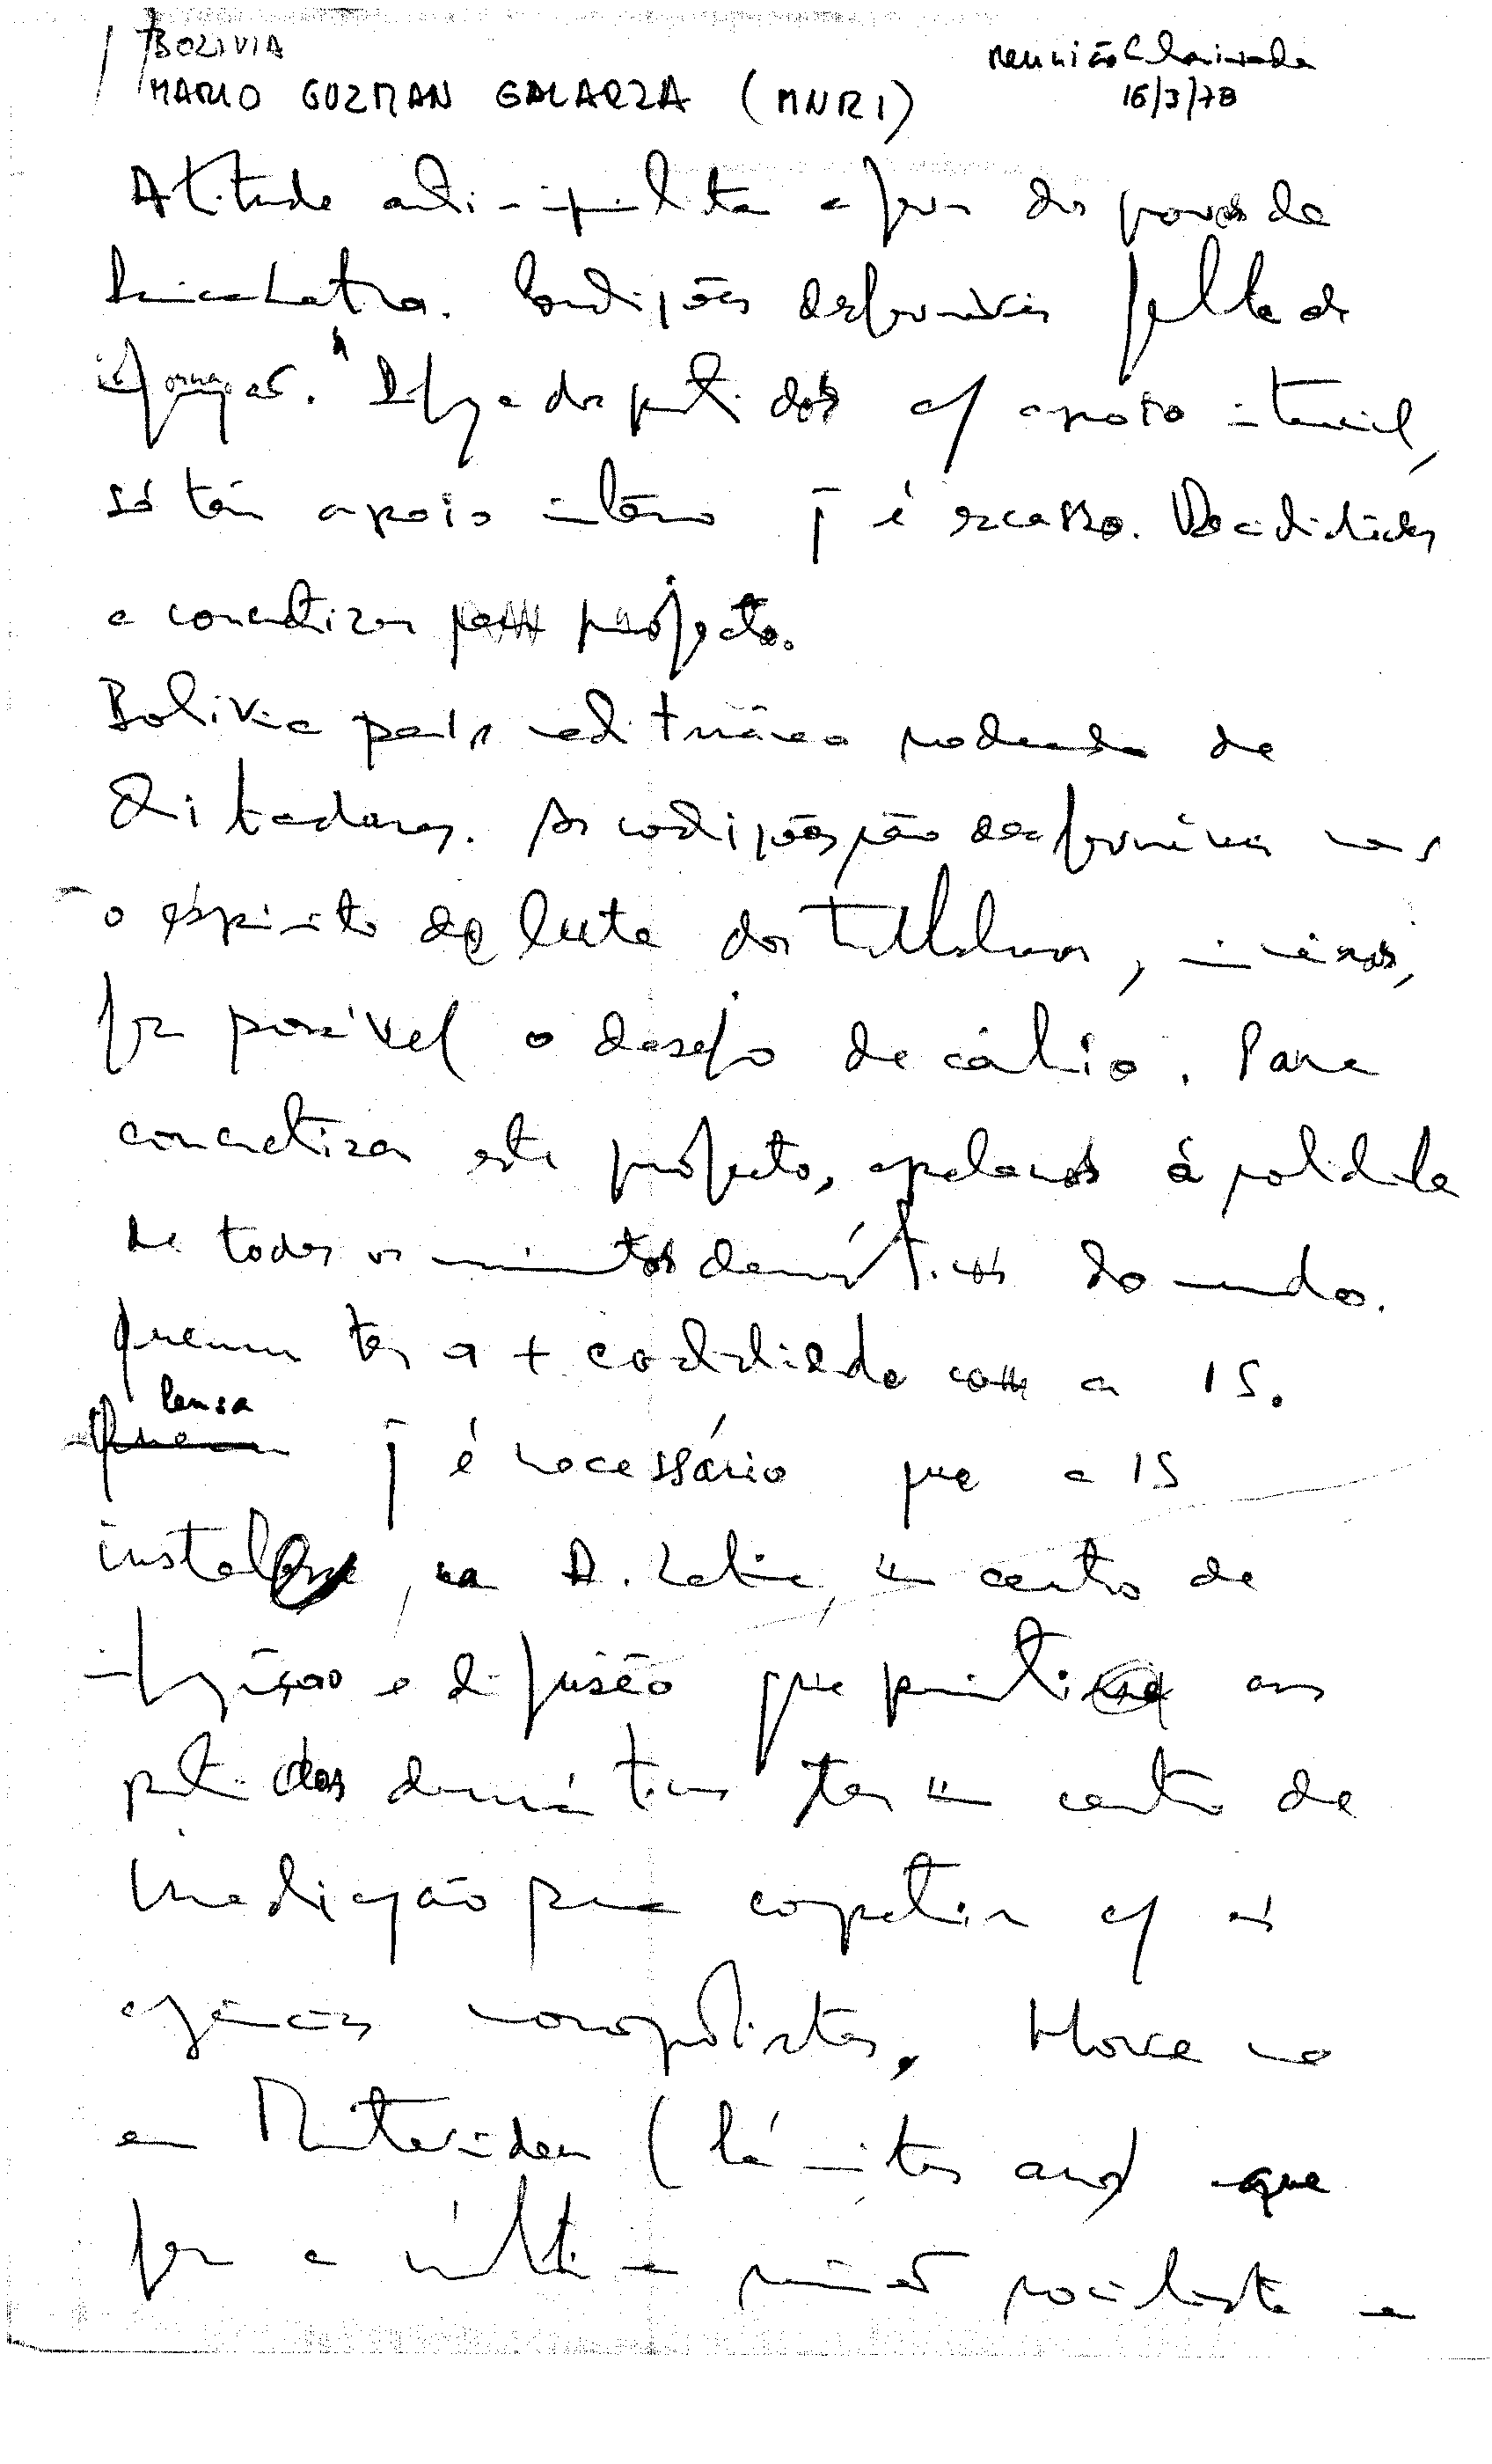 BOLIVIA
reunião
16/3/78
MARIO GUZMAN GALARZA (MNRI)
Atitude anti-imperialista a favor dos povos da
America Latina. Condições desfavoráveis falta de
informação. dos partidos c/ apoio
só têm apoio interno q̄ é escasso. Decididos
a concretizar projecto.
Bolivia país mediterrâneo rodeado de
ditadores. As condições são desfavoráveis mas
o espírito de luta dos trabalhadores, mineiros,
fez possível o desejo de câmbio. Para
concretizar este projecto, apelamos á solidariedade
de todos os movimentos democráticos do mundo.
Queremos ter a + cordialidade com a IS.
Pensa
q̄ é necessário que a IS
instale, na A. Latina, um centro de
informação e difusão que permita aos
partidos democráticos ter um centro de
irradiação para competir c/ as
agências monopolistas. Houve uma
em Montevideu (há muitos anos) que
foi a última reunião socialista na